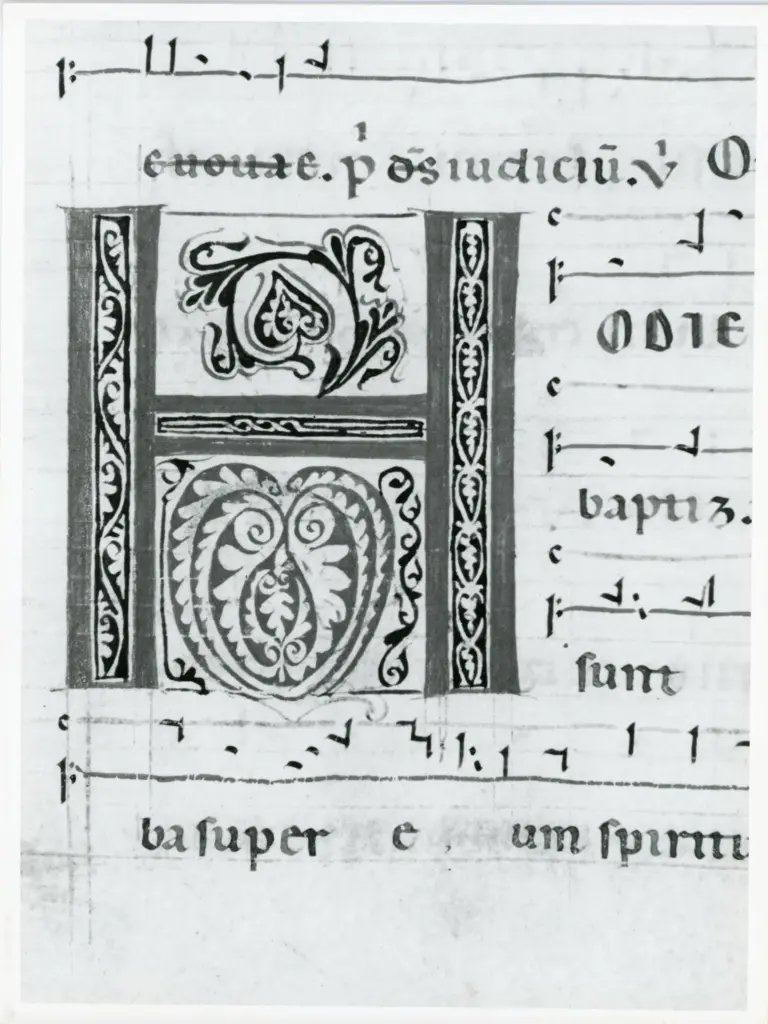 euouae. p̄ d̄s iudiciū. v̄ O
H ODIE
baptiz.
sunt
ba super e um spiritu